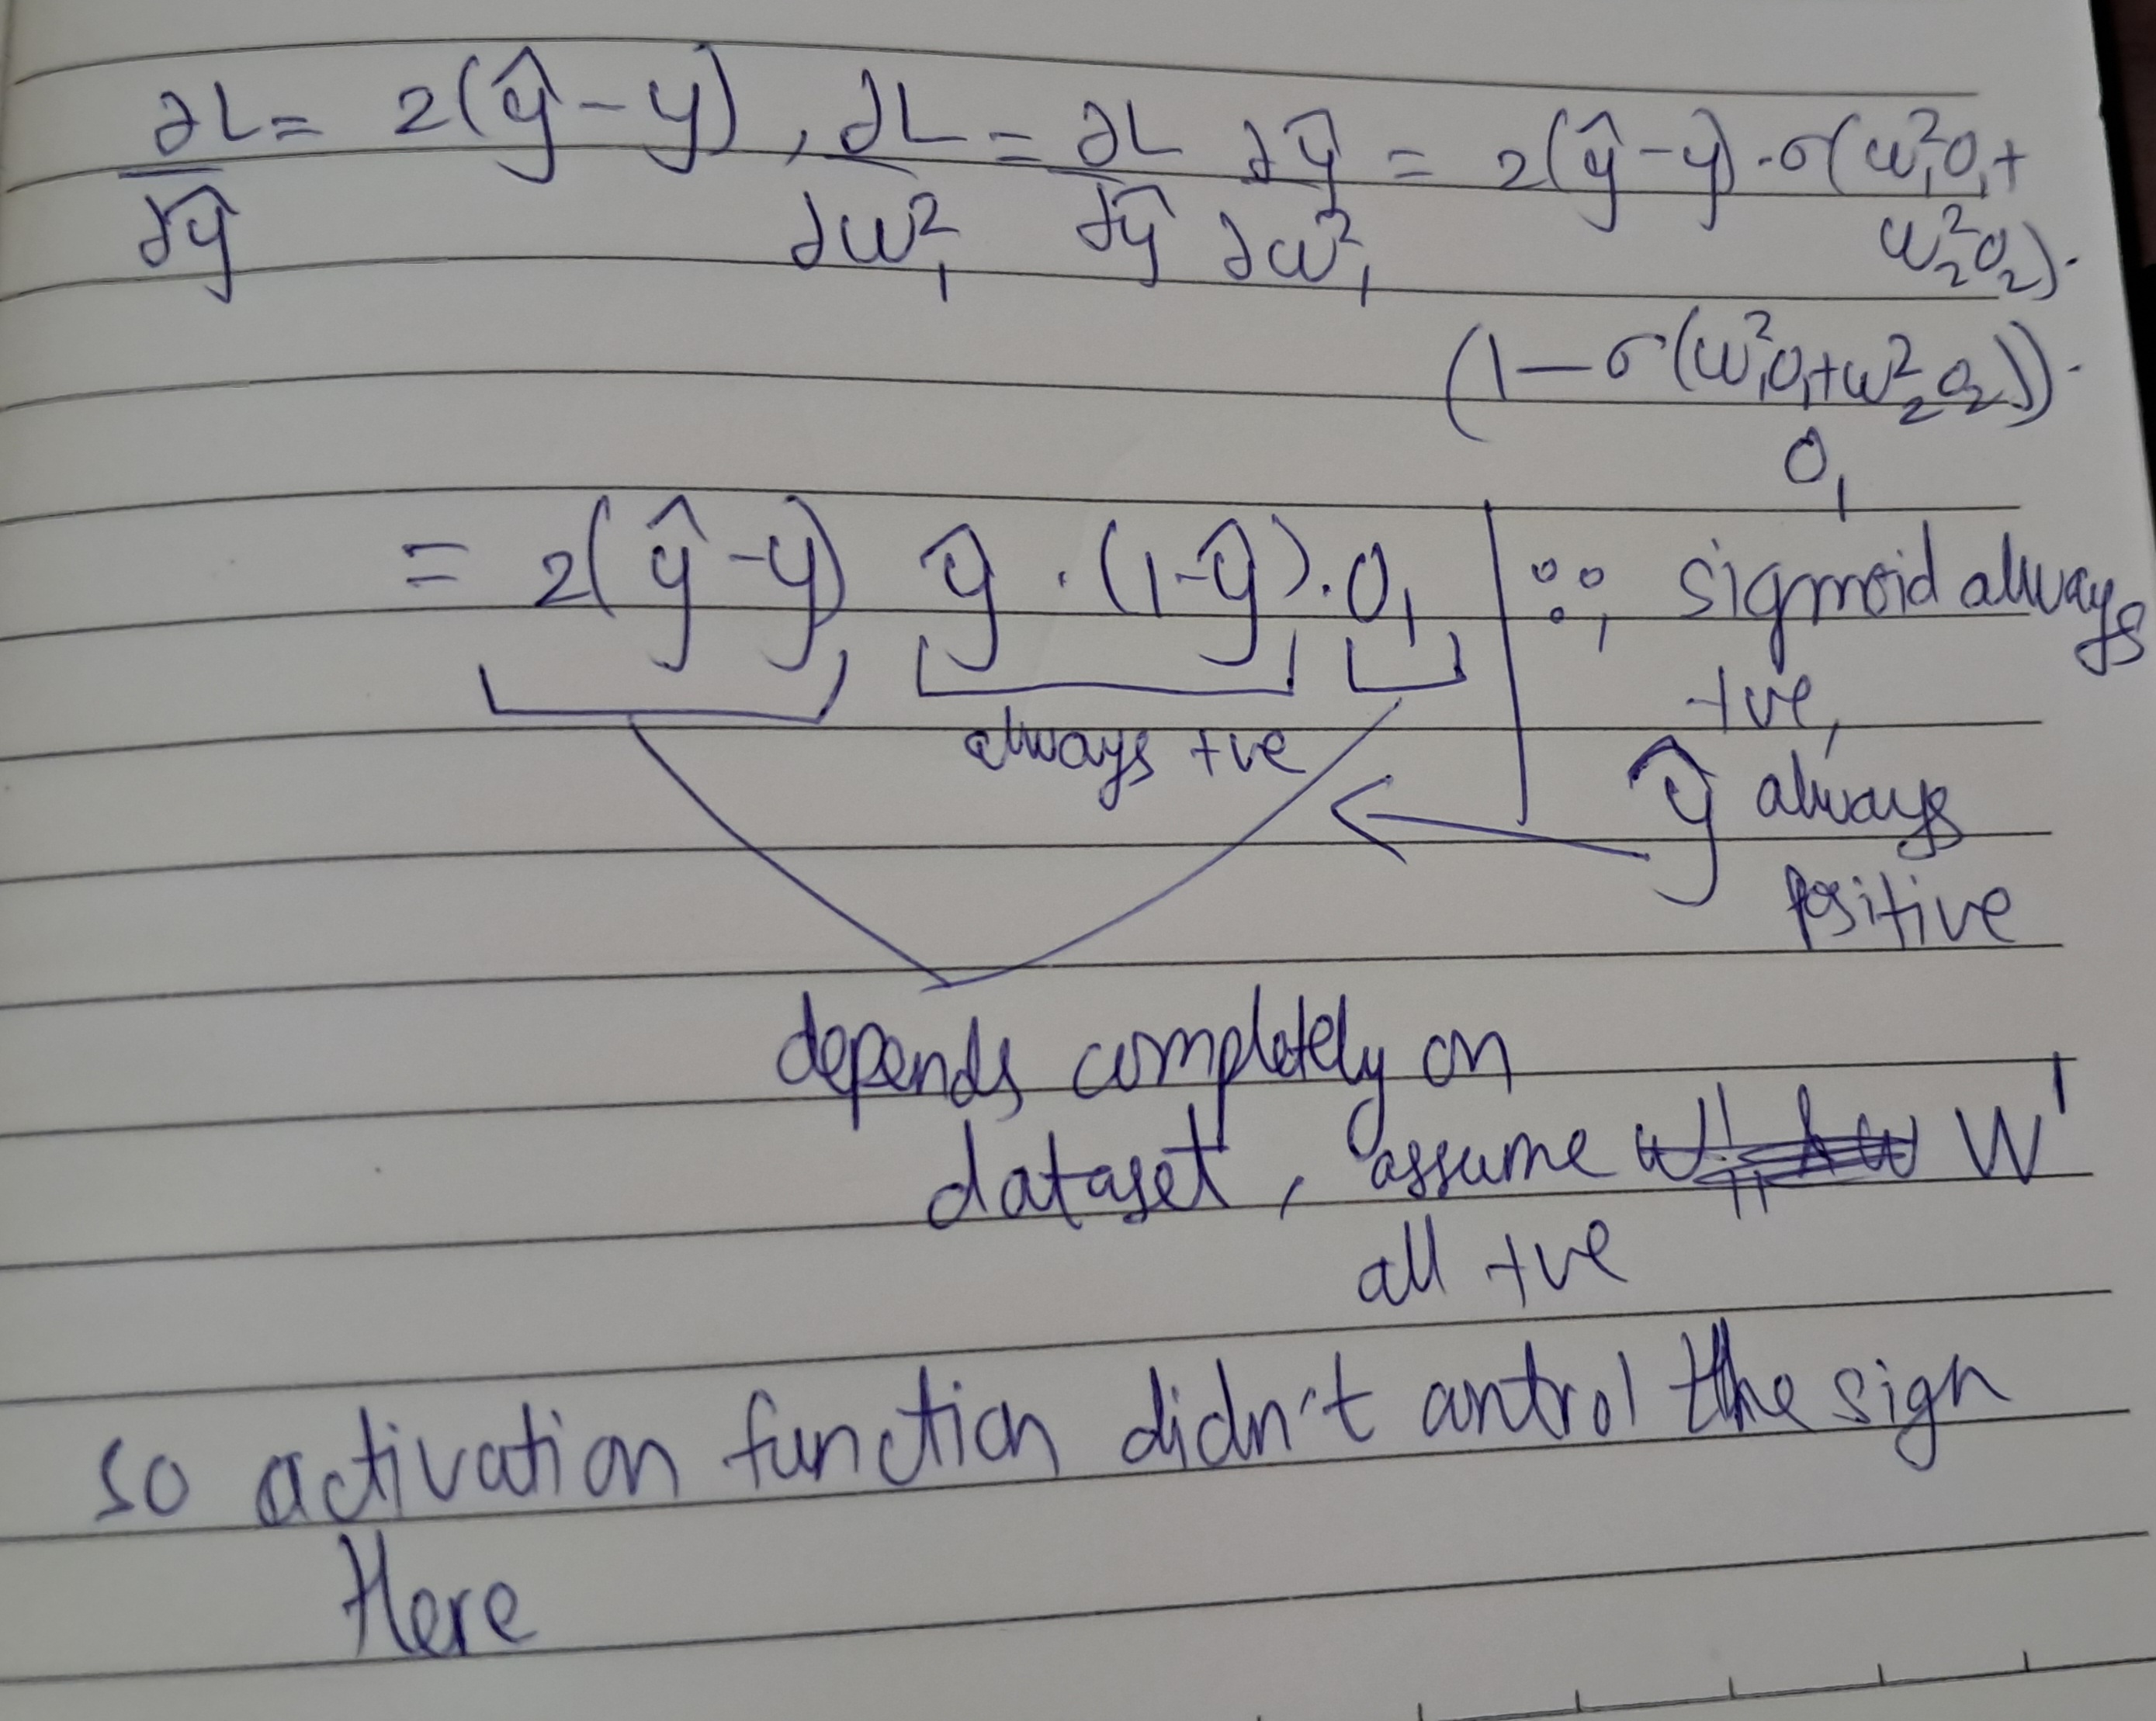 ∂L/∂ŷ = 2(ŷ-y), ∂L/∂w₁² = ∂L/∂ŷ ∂ŷ/∂w₁² = 2(ŷ-y)·σ(w₁²o₁+
w₂²o₂)·
(1-σ(w₁²o₁+w₂²o₂))·
o₁
= 2(ŷ-y) ŷ·(1-ŷ)·o₁ | ∵, sigmoid always
+ve,
always +ve
ŷ always
positive
depends completely on
dataset, assume W¹
all +ve
so activation function didn't control the sign
Here